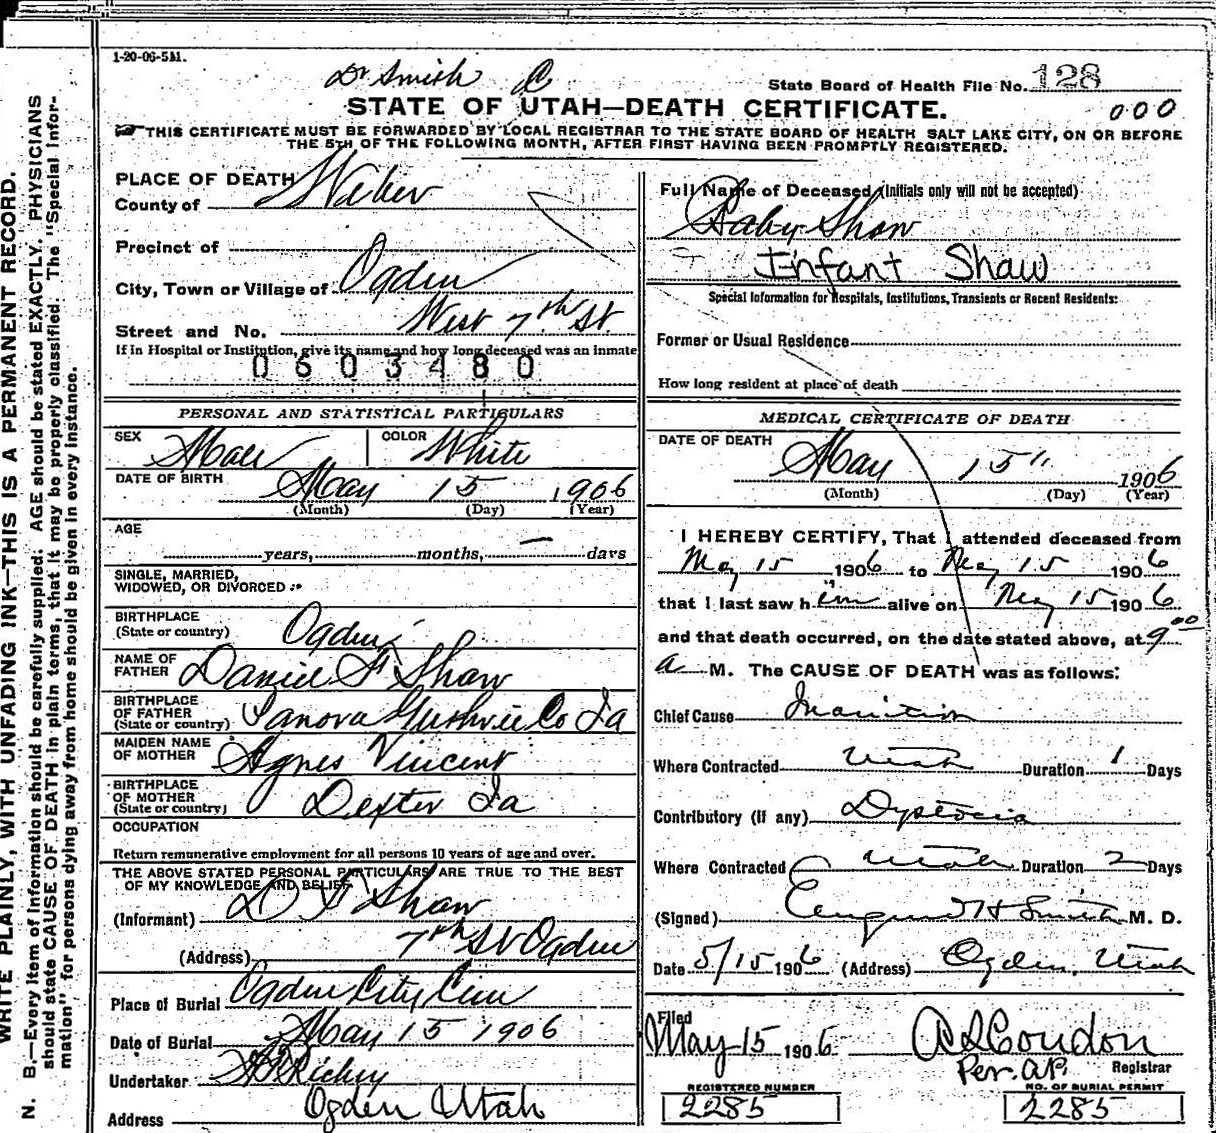 1-20-06-5M.
Dr Smith
State Board of Health File No. 128
STATE OF UTAH—DEATH CERTIFICATE.
000
THIS CERTIFICATE MUST BE FORWARDED BY LOCAL REGISTRAR TO THE STATE BOARD OF HEALTH SALT LAKE CITY, ON OR BEFORE
THE 5TH OF THE FOLLOWING MONTH, AFTER FIRST HAVING BEEN PROMPTLY REGISTERED.
PLACE OF DEATH
County of Weber
Precinct of
City, Town or Village of Ogden
Street and No. West 7th St.
If in Hospital or Institution, give its name and how long deceased was an inmate
0603480
PERSONAL AND STATISTICAL PARTICULARS
SEX Male COLOR White
DATE OF BIRTH May 15 1906
(Month) (Day) (Year)
AGE
years, months, — days
SINGLE, MARRIED,
WIDOWED, OR DIVORCED
BIRTHPLACE
(State or country) Ogden
NAME OF
FATHER Daniel F Shaw
BIRTHPLACE
OF FATHER
(State or country) Panora Guthrie Co Ia
MAIDEN NAME
OF MOTHER Agnes Vincent
BIRTHPLACE
OF MOTHER
(State or country) Dexter Ia
OCCUPATION
Return remunerative employment for all persons 10 years of age and over.
THE ABOVE STATED PERSONAL PARTICULARS ARE TRUE TO THE BEST
OF MY KNOWLEDGE AND BELIEF
(Informant) D F Shaw
(Address) 7th St Ogden
Place of Burial Ogden City Cem
Date of Burial May 15 1906
Undertaker Richey
Address Ogden Utah
Full Name of Deceased (Initials only will not be accepted)
Baby Shaw
Infant Shaw
Special Information for Hospitals, Institutions, Transients or Recent Residents:
Former or Usual Residence
How long resident at place of death
MEDICAL CERTIFICATE OF DEATH
DATE OF DEATH
May 15" 1906
(Month) (Day) (Year)
I HEREBY CERTIFY, That I attended deceased from
May 15 1906 to May 15 1906
that I last saw him alive on May 15 1906
and that death occurred, on the date stated above, at 9 00
a M. The CAUSE OF DEATH was as follows:
Chief Cause Inanition
Where Contracted Utah Duration 1 Days
Contributory (If any) Dystocia
Where Contracted Utah Duration 2 Days
(Signed) H Smith M. D.
Date 5/15 1906 (Address) Ogden, Utah
Filed
May 15 1906 Condon
Per. A.P. Registrar
REGISTERED NUMBER
2285
NO. OF BURIAL PERMIT
2285
WRITE PLAINLY, WITH UNFADING INK—THIS IS A PERMANENT RECORD.
N. B.—Every item of information should be carefully supplied. AGE should be stated EXACTLY. PHYSICIANS
should state CAUSE OF DEATH in plain terms, that it may be properly classified. The "Special Infor-
mation" for persons dying away from home should be given in every instance.